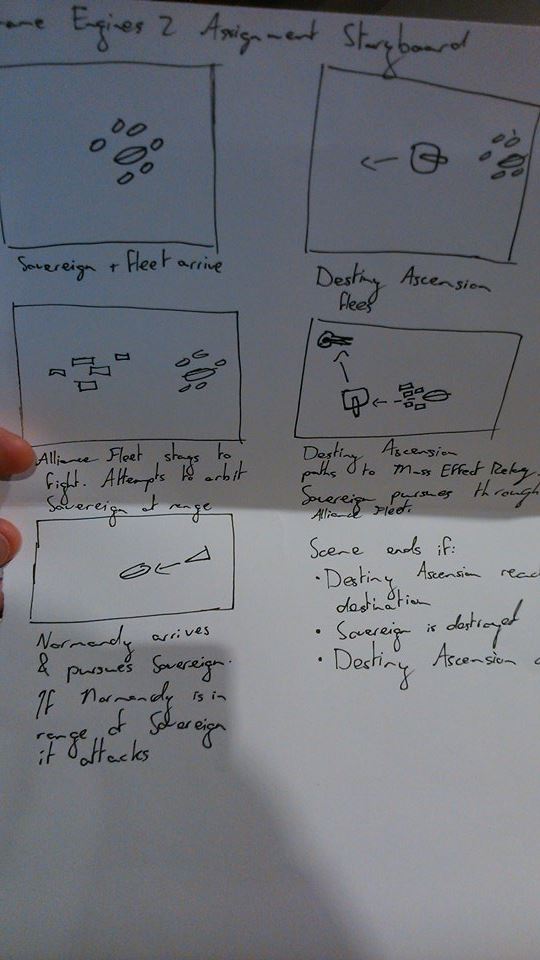 ame Engines 2 Assignment Storyboard
Sovereign + Fleet arrive
Destiny Ascension
flees
Alliance Fleet stays to
fight. Attempts to orbit
Sovereign at range
Destiny Ascension
paths to Mass Effect Relay.
Sovereign pursues through
Alliance Fleet.
Normandy arrives
& pursues Sovereign.
If Normandy is in
range of Sovereign
it attacks
Scene ends if:
• Destiny Ascension reac
destination
• Sovereign is destroyed
• Destiny Ascension